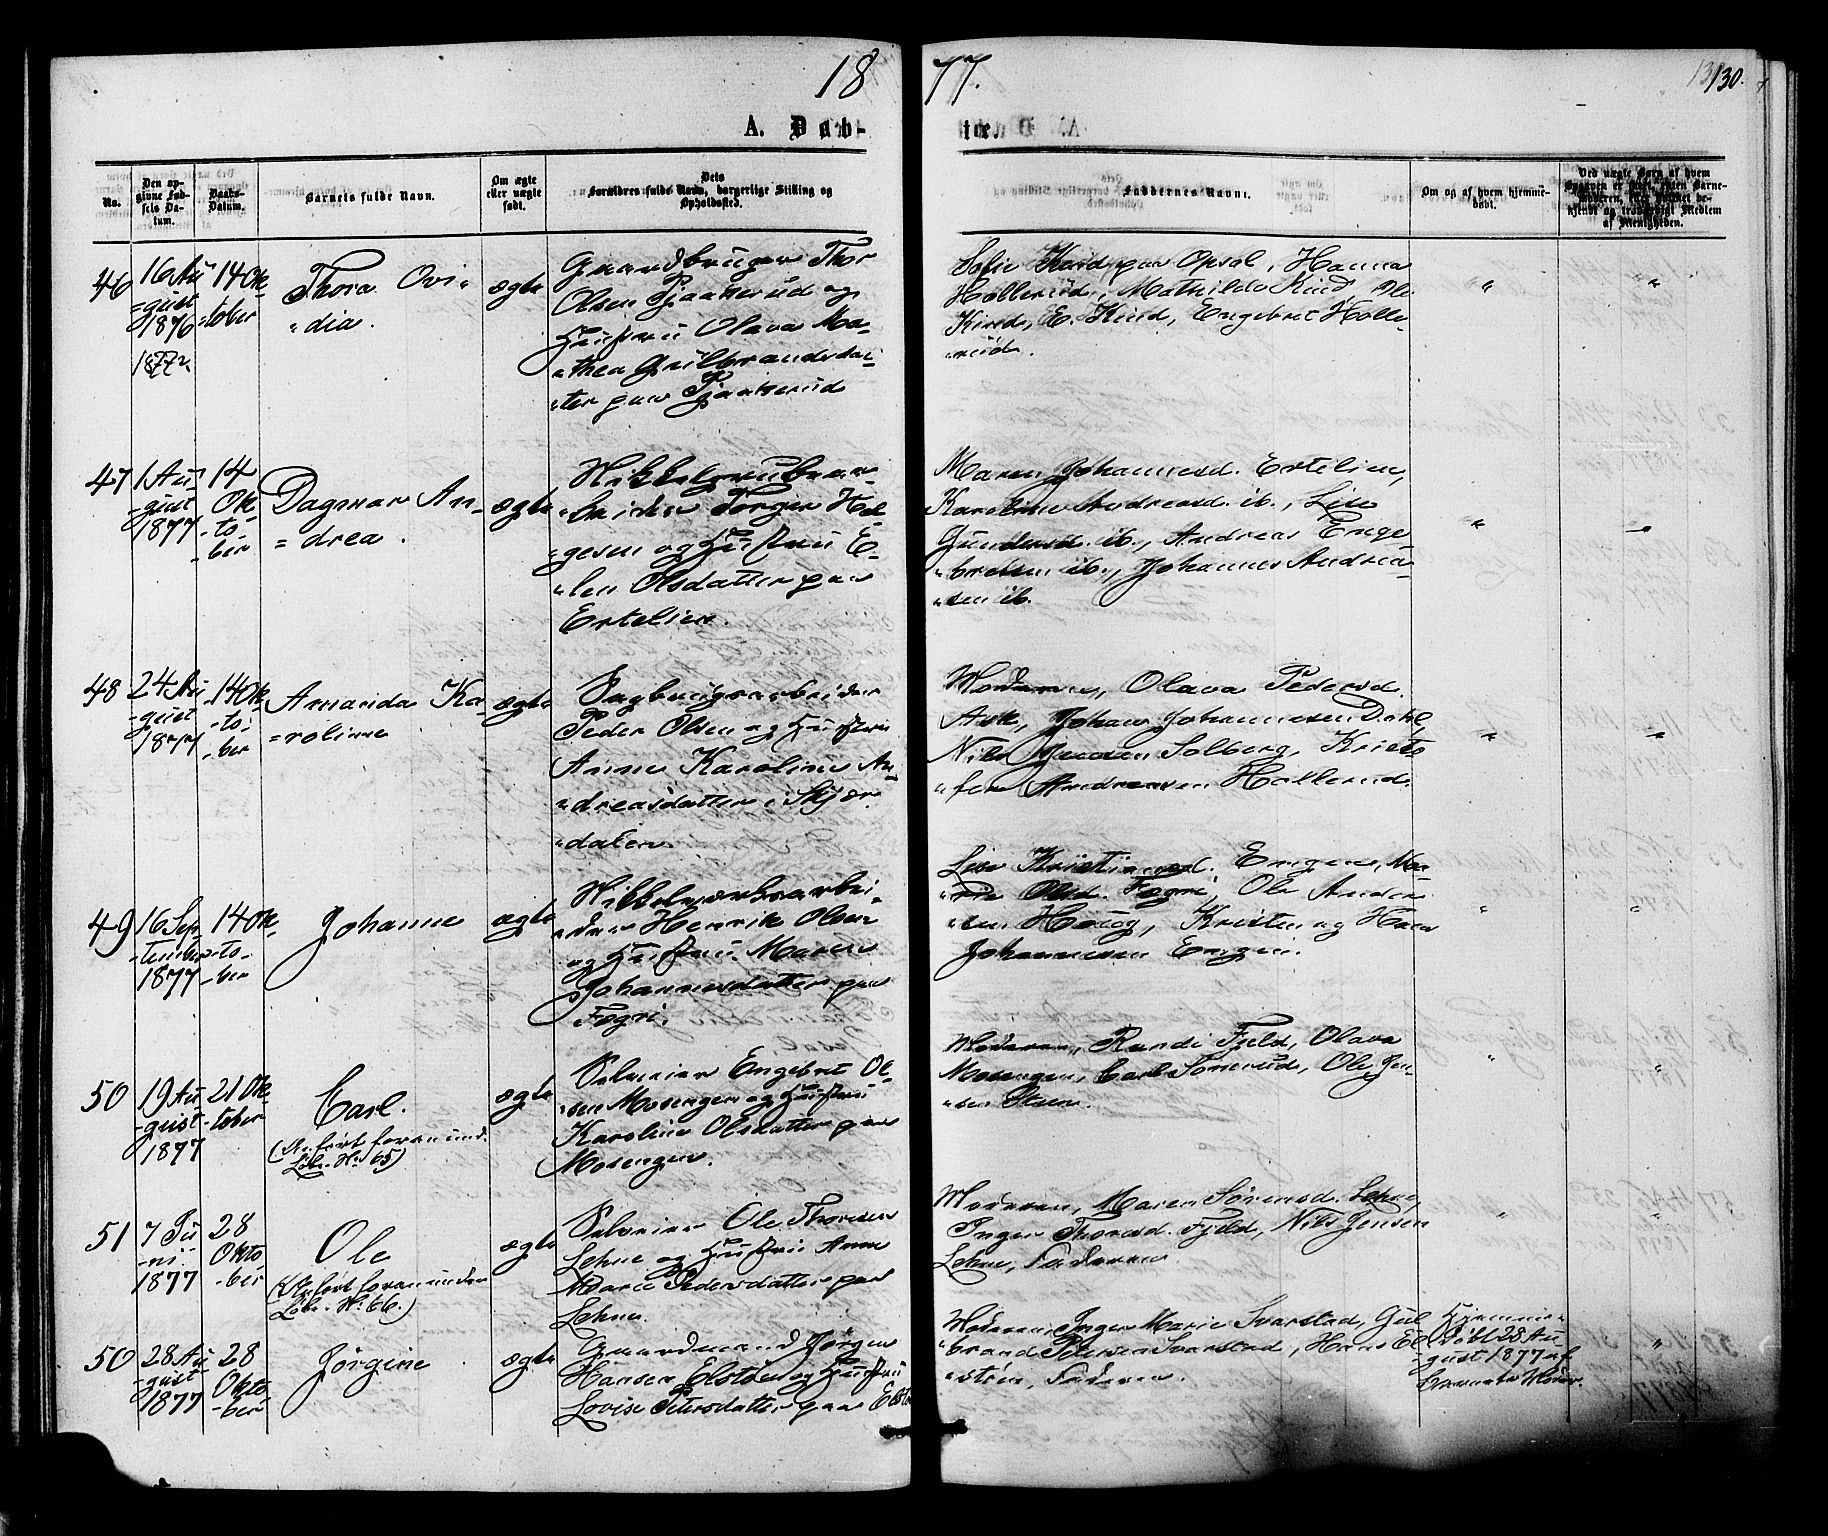 18
77.
130.
A. Døb-
te.
No.
Den op-
givne Fød-
sels Da-
tum.
Daabs-
Datum.
Barnets fulde Navn.
Om ægte
eller uægte
født.
Dets
Forældres fulde Navn, borgerlige Stilling og
Opholdssted.
Faddernes Navne.
Om og af hvem hjemme-
døbt.
Ved uægte Børn af hvem
Opgaven er skeet, uden Barne-
moderen, eller Præstet be-
kjendt og troværdigt Medlem
af Menigheden.
46
16 Au
=gust
1876
1877
14 Ok
=tober
Thora Ovi=
"dia.
ægte
Gaardbruger Thor
Olsen og
Hustru Olava Ma-
"thea Gulbrandsdat
"ter paa
Sofie Kind paa Opsal, Hanna
Hollerud, Mathilde Kind, Ole
Kind, E. Kind, Engebret Holle-
"rud.
"
"
47
1 Au-
-gust
1877
14
Ok-
-to-
-ber
Dagmar An-
=drea.
ægte
Nikkelgrubear-
"beider Torger Hel-
"gesen og Hustru E-
"len Olsdatter paa
Ertelien.
Maren Johannesd. Ertelien,
Karoline Andreasd. ib., Lise
Gundersd. ib., Andreas Enge
"bretsen ib., Johannes Andrea-
"sen ib.
"
"
48
24 Au
-gust
1877
14 Ok
-to-
-ber
Amanda Ka-
=roline
ægte
Sagbrugsarbeider
Peder Olsen og Hustru
Anne Karoline An
"dreasdatter i Skjær
"dalen.
Moderen, Olava Pedersd.
Ask, Johan Johannesen Dahl,
Nils Jensen Solberg, Kristo
"fer Andreasen Hollerud.
"
"
49
16 Sep
-tember
1877
14 Ok
-to-
-ber
Johanne
ægte
Nikkelværksarbei-
"der Henrik Olsen
og Hustru Maren
Johannesdatter paa
Fægri.
Lise Kristiansd. Engen, Ma-
"rie Olsd. Fægri, Ole Ander
"sen Houg, Kristen og Hans
Johannesen Engen.
"
"
50
19 Au
-gust
1877
21 Ok
-tober
Carl.
(Anført foran und.
Löbe-No 65)
ægte
Selveier Engebret Ol-
"sen Mosengen og Hustru
Karoline Olsdatter paa
Mosengen.
Moderen, Randi Fjeld, Olava
Mosengen, Carl Sørerud, Ole Jen-
"sen Steen.
"
"
51
7 Ju
-ni
1877
28
Okto
-ber
Ole
(Anført foran under
Löbe-No 66.)
ægte
Selveier Ole Thoresen
Lehne og Hustru Anne
Marie Pedersdatter paa
Lehne.
Moderen, Maren Sørensd. Lehne,
Inger Thoresd. Fjeld, Nils Jensen
Lehne, Faderen.
"
"
50
28 Au
-gust
1877
28
Okto
-ber
Jørgine
ægte
Gaardmand Jørgen
Hansen Elstøen og Hustru
Lovise Petersdatter paa Elstøen
Moderen, Inger Marie Svarstad, Gul
"brand Petersen Svarstad, Hans El
"støen, Faderen.
Hjemme-
døbt 28 Au
-gust 1877 af
Barnets Moder.
"